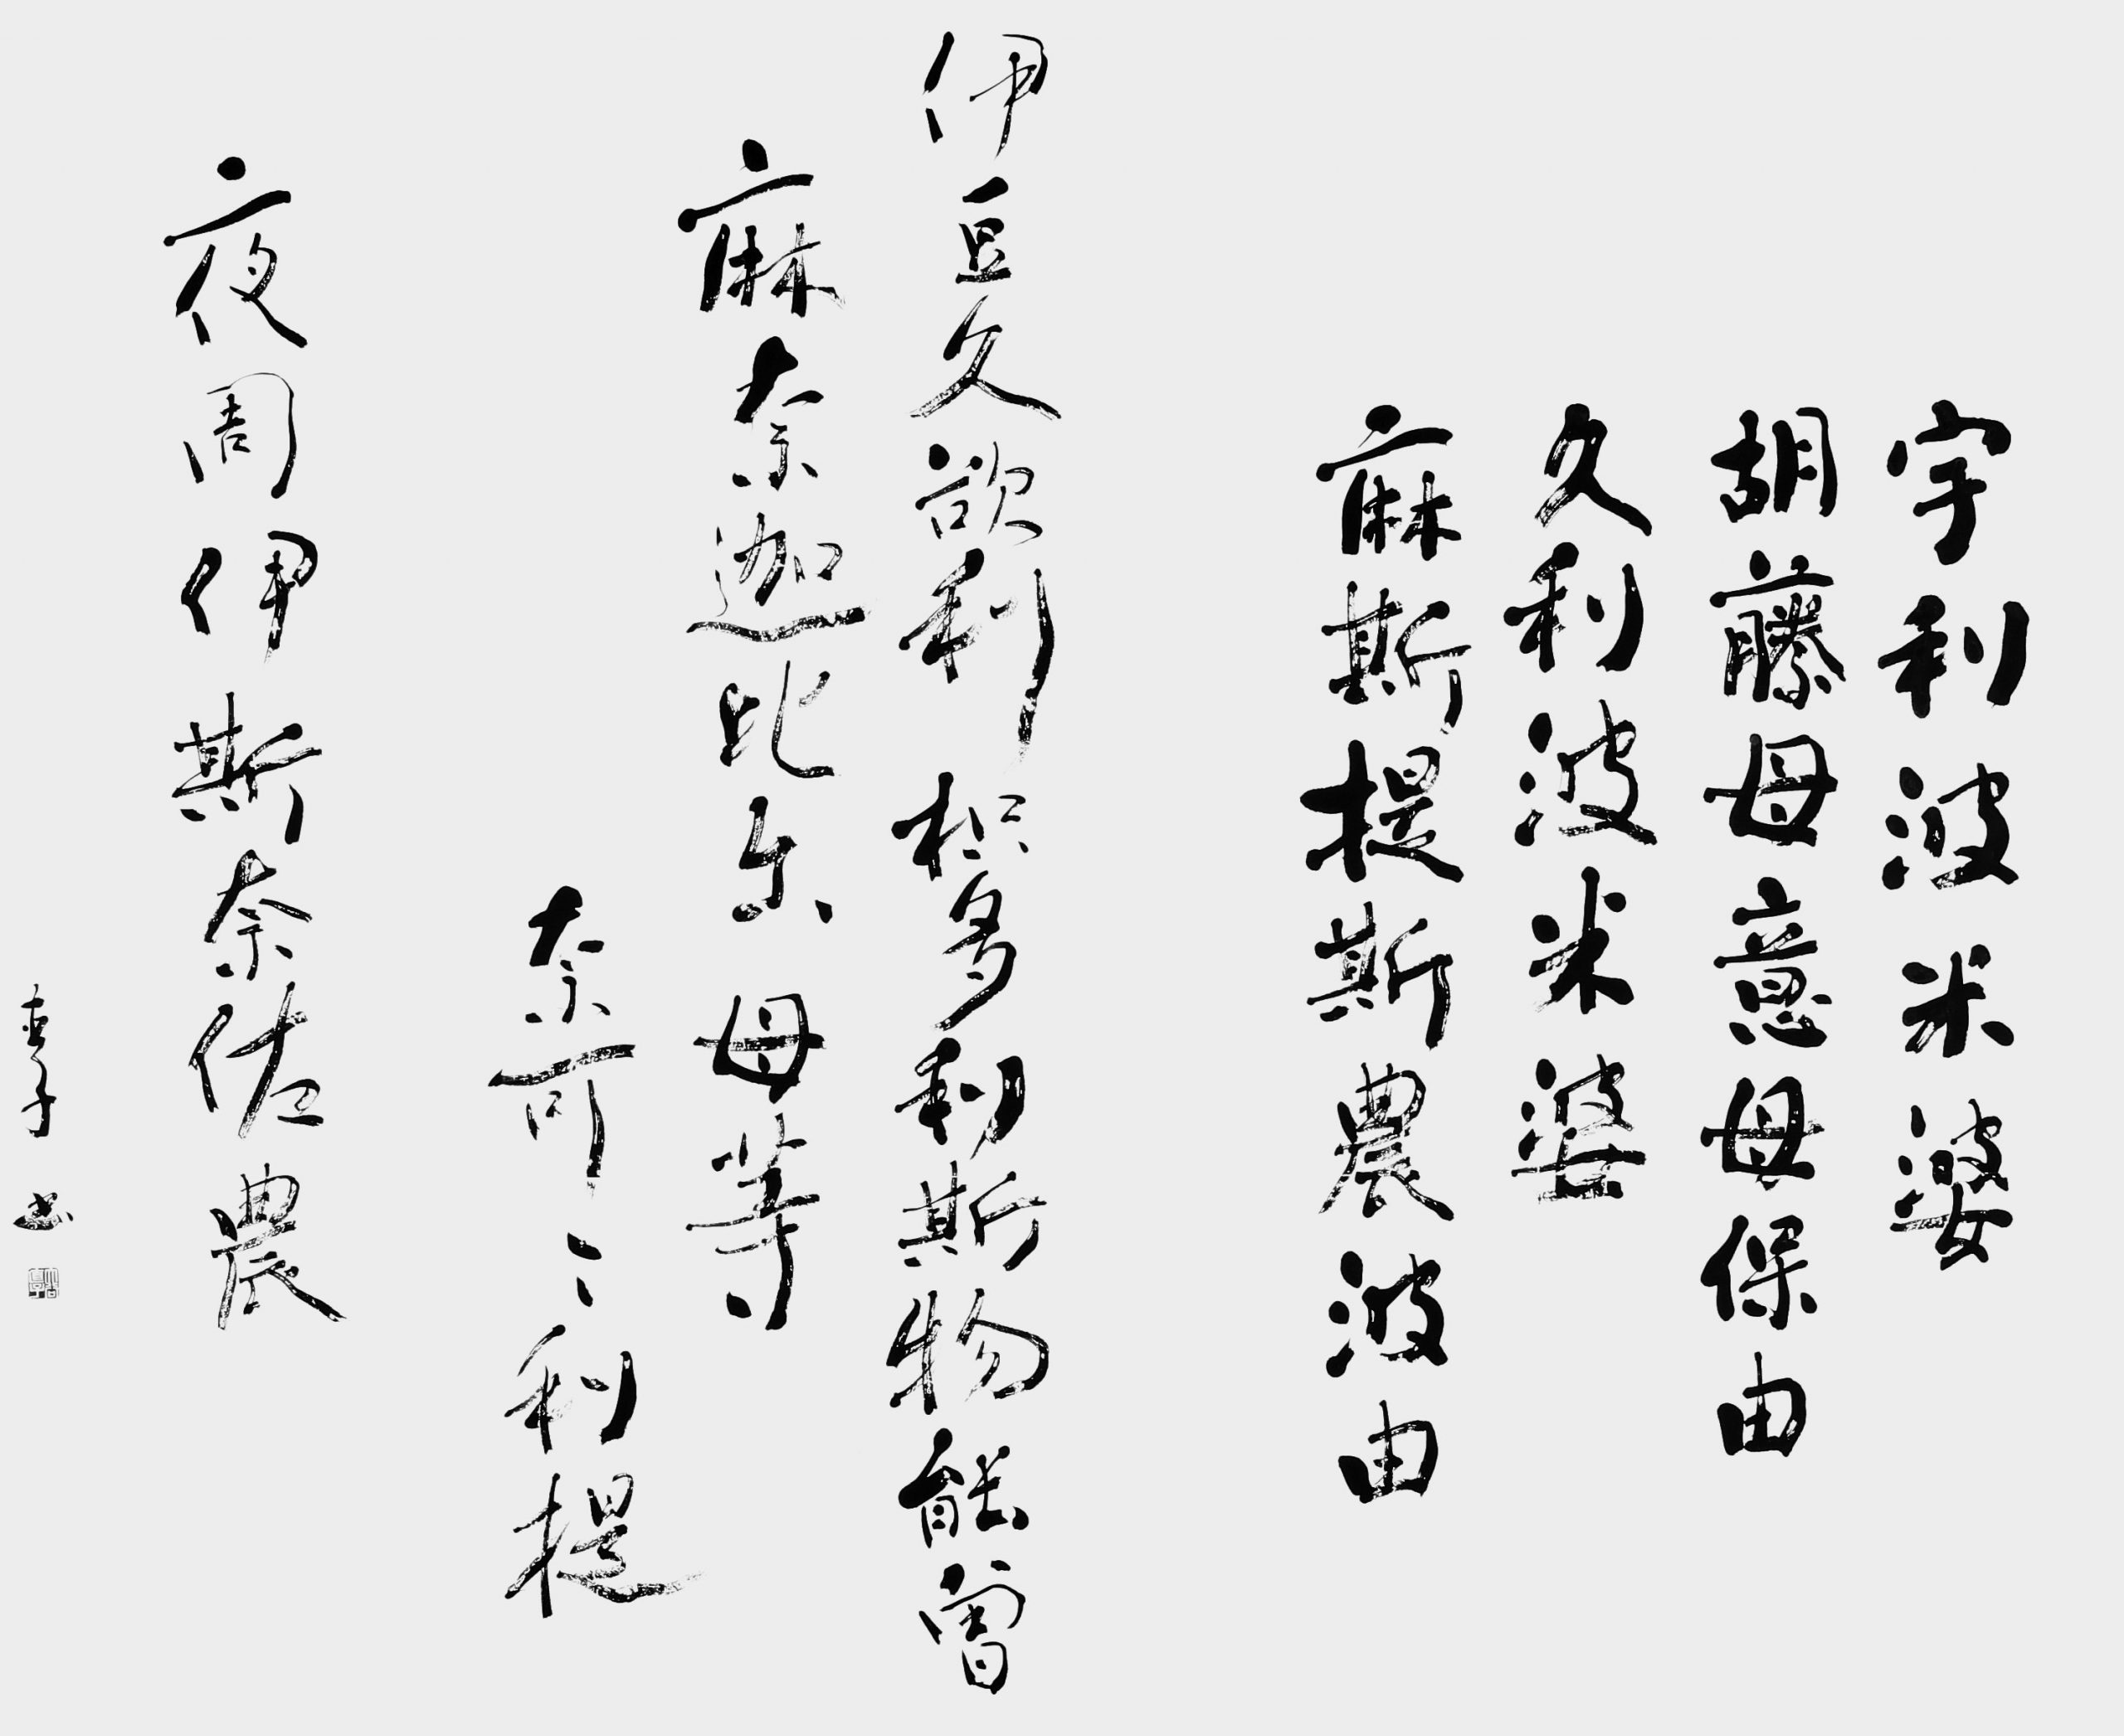 宇利波米婆
胡藤母意母保由
久利波米婆
麻斯提斯農波由
伊豆久欲利枳多利斯物能曽
麻奈迦比尓母等
奈可々利提
夜周伊斯奈佐農
書